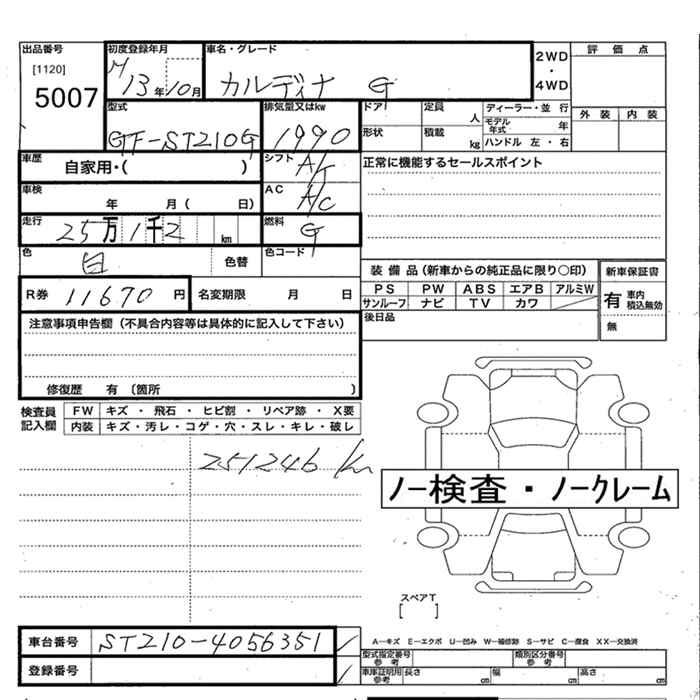 出品番号 初度登録年月 車名・グレード 2WD・4WD 評価点
[1120] 5007 H13年10月 カルディナ G
外装 内装
型式 排気量又はkw ドア 定員 人 ディーラー・並行
GF-ST210G 1990 形状 積載 kg モデル年式 年
ハンドル 左・右
車歴 自家用・( ) シフト A/T 正常に機能するセールスポイント
車検 年 月 ( 日) AC A/C
走行 25万1千2 km 燃料 G
色 白 色替 色コード
R券 11670 円 名変期限 月 日
装備品(新車からの純正品に限り○印) 新車保証書
PS PW ABS エアB アルミW
サンルーフ ナビ TV カワ
有 車内積込無効
無
後日品
注意事項申告欄(不具合内容等は具体的に記入して下さい)
修復歴 有 〔箇所 〕
検査員記入欄 FW キズ・飛石・ヒビ割・リペア跡・X要
内装 キズ・汚レ・コゲ・穴・スレ・キレ・破レ
251246 km
ノー検査・ノークレーム
スペアT
[ ]
車台番号 ST210-4056351
登録番号
A―キズ E―エクボ U―凹み W―補修跡 S―サビ C―腐食 XX―交換済
型式指定番号 参考 類別区分番号 参考
車庫証明用 参考 長さ cm 幅 cm 高さ cm